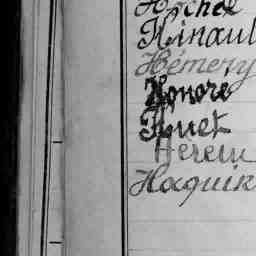 Hochet
Hinaul
Hémery
Honoré
Huet
Hérem
Haquin